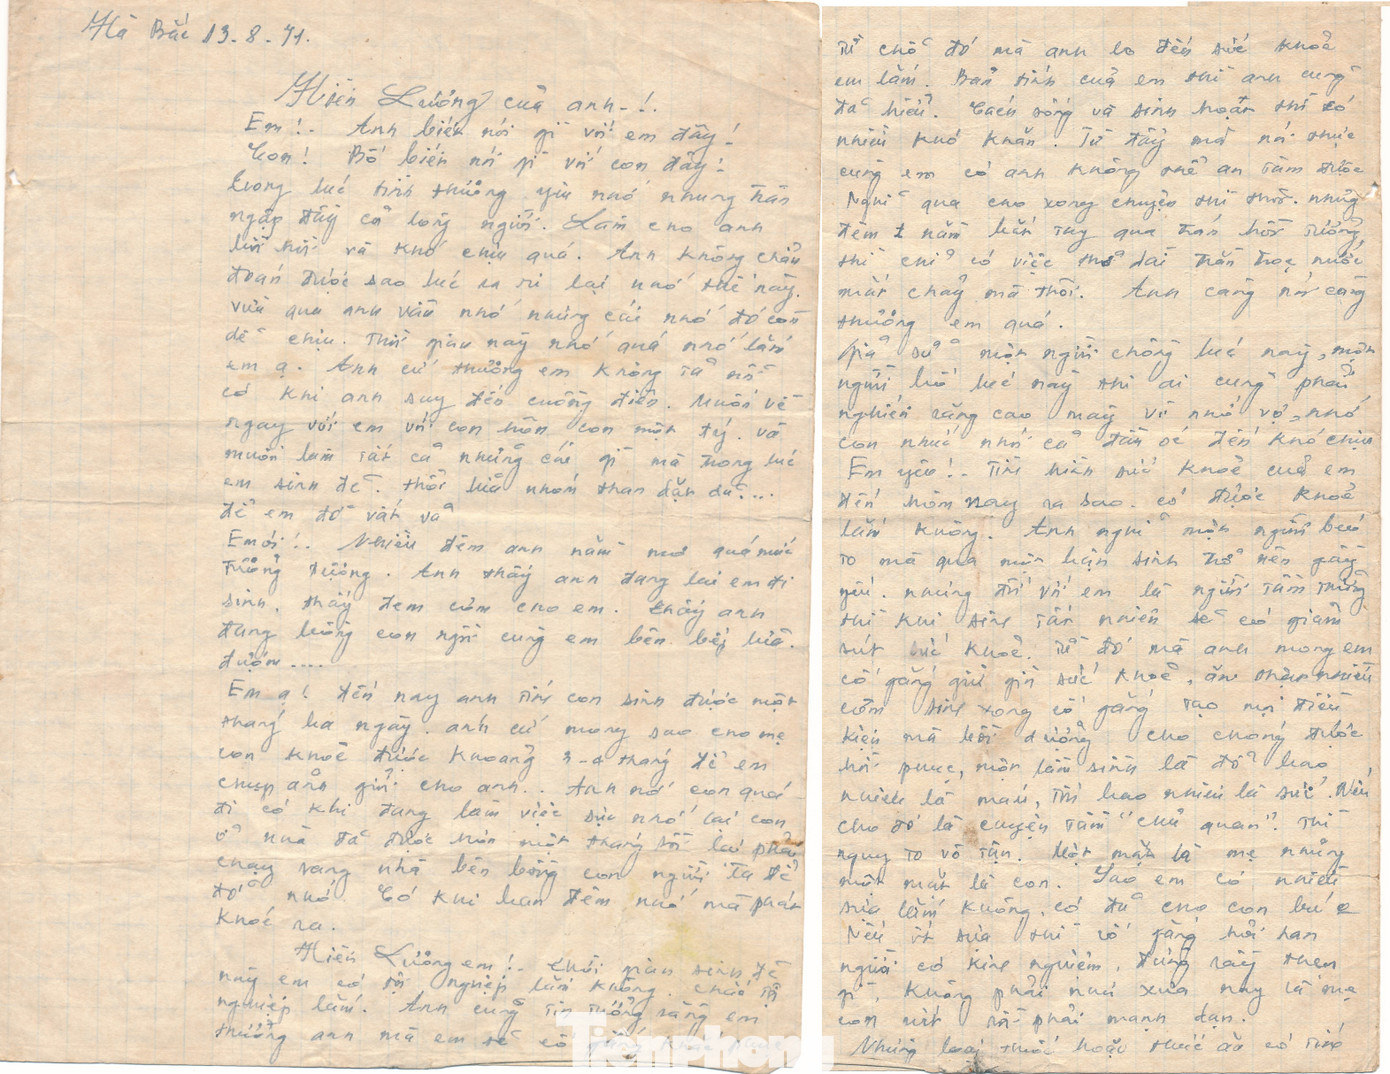 Hà Bắc 13.8.71.
Hiền Lương của anh-!.
Em!. Anh biết nói gì với em đây!
Con! Bố biết nói gì với con đây!
Trong lúc tình thương yêu nhớ nhung tràn
ngập đầy cả lòng người. Làm cho anh
bồi hồi và khó chịu quá. Anh không chẩn
đoán được sao lúc sa ri lại nhớ thế này.
vừa qua anh vẫn nhớ nhưng cái nhớ đó còn
dễ chịu. Thời gian này nhớ quá nhớ lắm
em ạ. Anh cứ thương em không tả nổi
có khi anh suy đến cuồng điên. Muốn về
ngay với em với con hôn con một tý. và
muốn làm tất cả những cái gì mà trong lúc
em sinh đẻ. thổi lửa nhóm than dặt dẹ....
để em đỡ vất vả
Em ơi!.. Nhiều đêm anh nằm mơ quá mức
tưởng tượng. Anh thấy anh đang lai em đi
sinh. thấy đem cơm cho em. thấy anh
đang bồng con ngồi cùng em bên bếp lửa.
đượm....
Em ạ! đến nay anh tính con sinh được một
tháng ba ngày. anh cứ mong sao cho mẹ
con khỏe được khoảng 3-4 tháng để em
chụp ảnh gửi cho anh.. Anh nhớ con quá
đi có khi đang làm việc sực nhớ lại con
ở nhà đã được hơn một tháng rồi lại phải
chạy sang nhà bên bồng con người ta để
đỡ nhớ. Có khi ban đêm nhớ mà phát
khóc ra.
Hiền Lương em!- Thời gian sinh đẻ
này em có tội nghiệp lắm không. chắc tội
nghiệp lắm. Anh cũng tin tưởng rằng em
thương anh mà em sẽ cố
Tiền phong
Từ chỗ đó mà anh lo đến sức khoẻ
em lắm. Bản tính của em thì anh cũng
đã hiểu. Cách sống và sinh hoạt thì có
nhiều khó khăn. Từ đấy mà nói thực
cùng em có anh không thể an tâm được
Nghĩ qua cho xong chuyện thì thôi. những
đêm nằm vắt tay qua trán hồi tưởng
thì chỉ có việc thở dài trằn trọc nước
mắt chảy mà thôi. Anh càng nói càng
thương em quá.
Giả sử một người chồng lúc này, một
người bố lúc này thì ai cũng phải
nghiến răng cau mày vì nhớ vợ, nhớ
con nhức nhối cả đầu óc đến khó chịu
Em yêu!- Tình hình sức khoẻ của em
đến hôm nay ra sao. có được khoẻ
lắm không. Anh nghĩ một người béo
to mà qua một lần sinh trở nên gầy
yếu. nhưng đối với em là người tầm thường
thì khi sinh tất nhiên sẽ có giảm
sút sức khoẻ. Từ đó mà anh mong em
cố gắng giữ gìn sức khoẻ, ăn thật nhiều
cơm sinh xong cố gắng tạo mọi điều
kiện mà bồi dưỡng cho chóng được
hồi phục, một lần sinh là đổ bao
nhiêu là máu, tốn bao nhiêu là sức. Nếu
cho đó là chuyện tầm "chủ quan". Thì
nguy to vô tận. Một mặt là mẹ nhưng
một mặt là con. Sao em có nhiều
sữa lắm không. có đủ cho con bú
Nếu ít sữa thì cố gắng hỏi han
người có kinh nghiệm. đừng rày thẹn
gì. không phải như xưa nay là mẹ
con rồi phải mạnh dạn.
Những loại thuốc hoặc thức ăn có tính